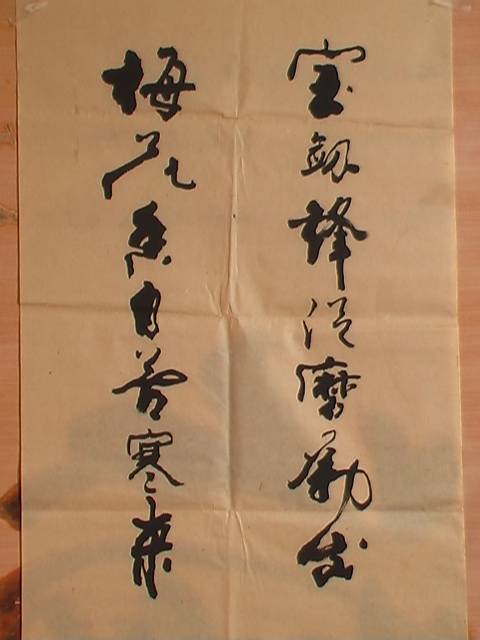 宝剑锋从磨励出
梅花香自苦寒来